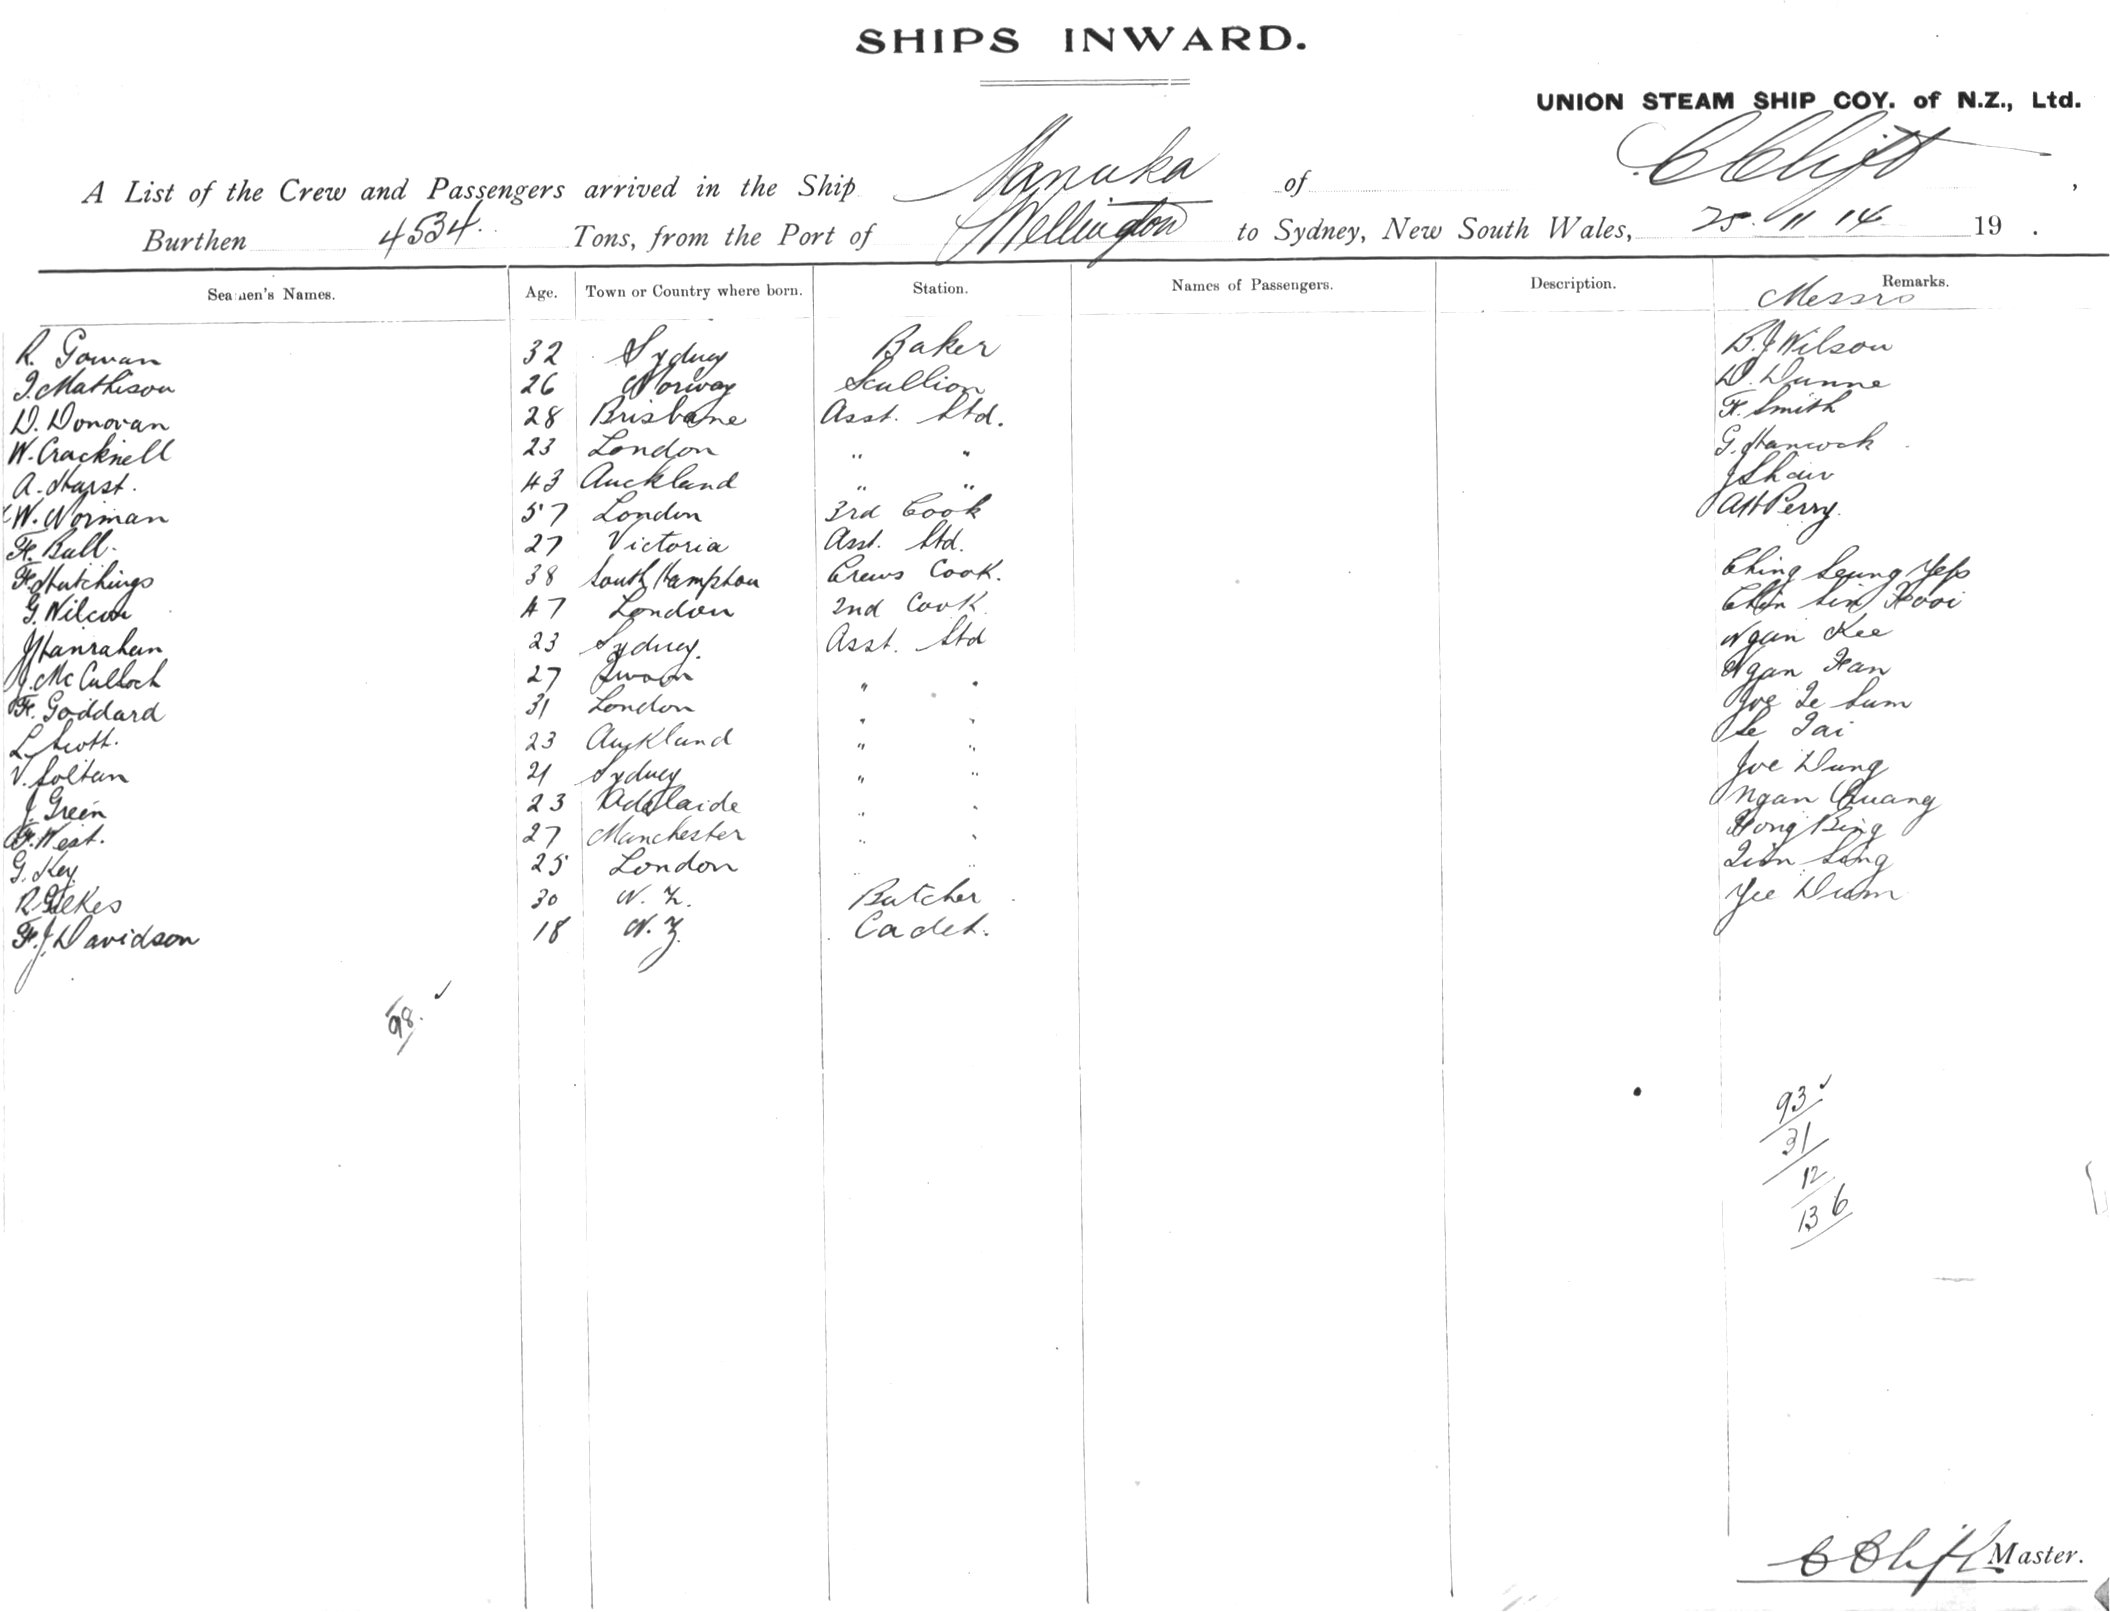 SHIPS INWARD.
UNION STEAM SHIP COY. of N.Z., Ltd.
A List of the Crew and Passengers arrived in the Ship Manuka of C Clift,
Burthen 4534. Tons, from the Port of Wellington to Sydney, New South Wales, 25. 11 14 19 .
Seamen's Names. Age. Town or Country where born. Station. Names of Passengers. Description. Remarks.
Messrs
R. Gowan 32 Sydney Baker B.J Wilson
J. Mathison 26 Norway Scullion D. Dunne
D. Donovan 28 Brisbane Asst. Std. F. Smith
W. Cracknell 23 London " " G. Hancock
A. Hurst. 43 Auckland " " J Shaw
W. Norman 57 London 3rd Cook AH Perry.
F. Bull. 27 Victoria Asst. Std.
F. Hutchings 38 South Hampton Crews Cook. Ching Seung Yep
G. Wilcox 47 London 2nd Cook Chin Sin Hooi
J Hanrahan 23 Sydney. Asst. Std Ngan Kee
J. McCulloch 27 " " Ngan Han
F. Goddard 31 London " " Joe Se Sum
L. Scott. 23 Auckland " " Se Tai
V. Soltan 21 Sydney " " Joe Dung
J. Green 23 Adelaide " " Ngan Quang
F. West. 27 Manchester " " Hong Bing
G. Key 25 London " Sing
R Gilkes 30 N. Z. Butcher Yee Dum
F. J. Davidson 18 N. Z. Cadet.
98.
93
31
12
136
C Clift Master.